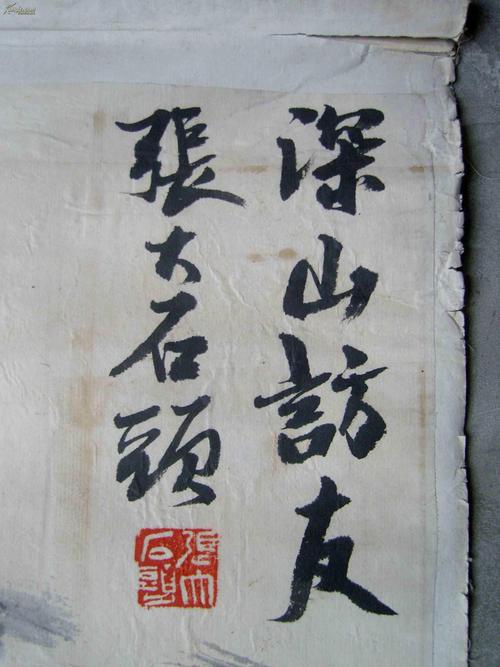 深山訪友
張大石頭
張大石頭